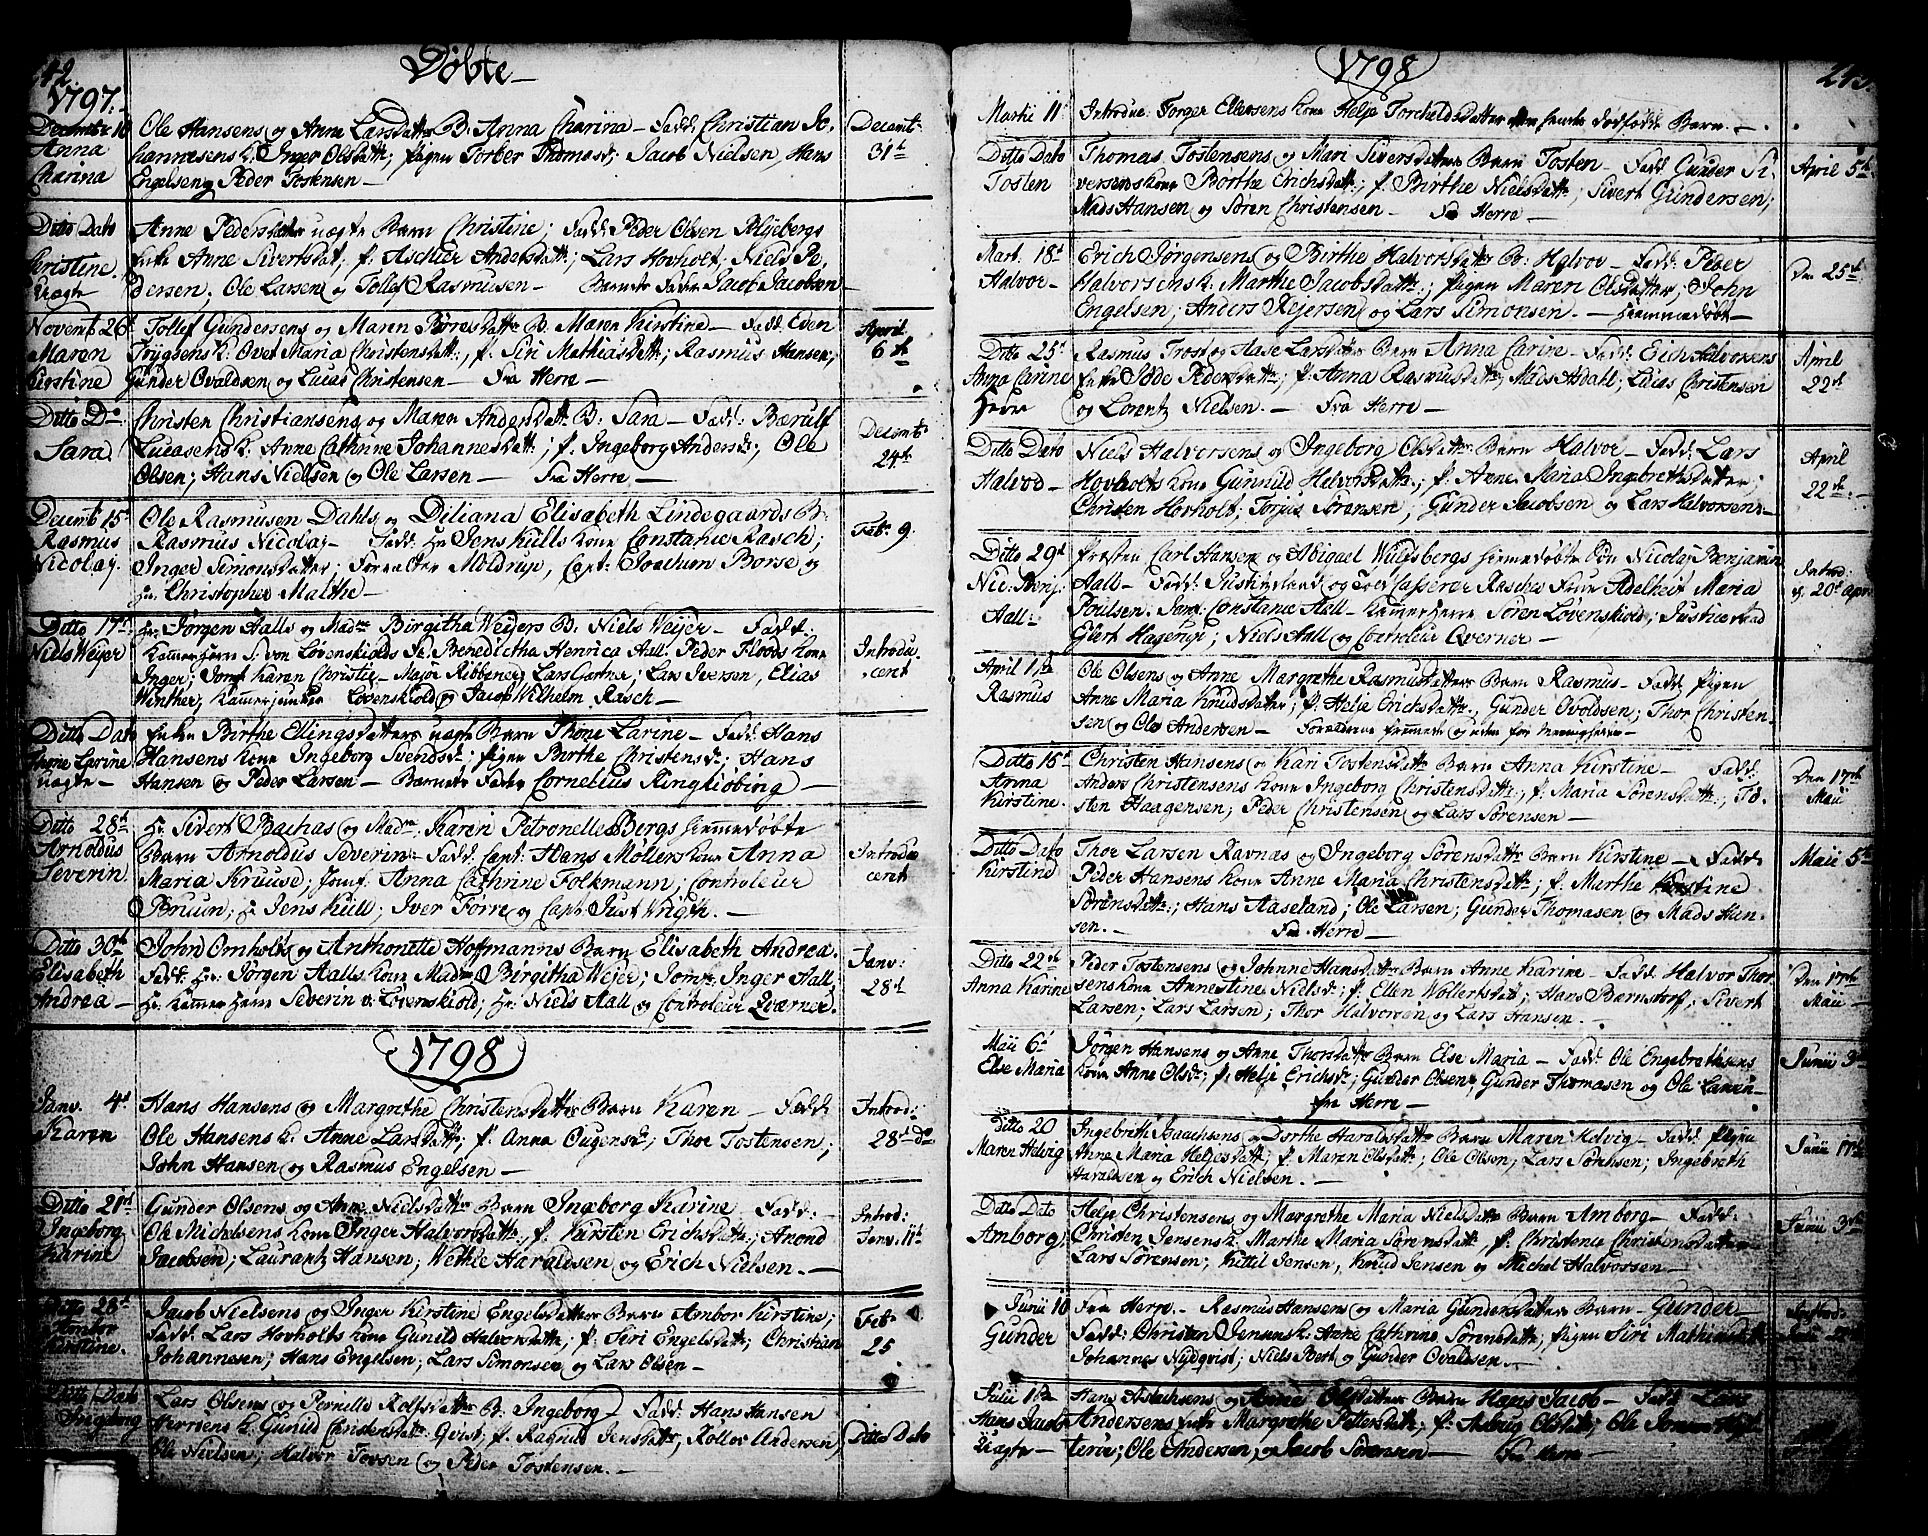 42.
Døbte
1797.
Decembr 10
Anna
Charina
Ole Hansens og Anne Larsdatters B: Anna Charina – Fadd: Christian Jo-
hannesens k: Inger Olsdattr; Pigen Torber Thomasd; Jacob Nielsen, Hans
Engelsen og Peder Tostensen –
Decembr
31te
Ditto Dato
Christine.
Uægte
Anne Pedersdatters uægte Barn Christine; Fadd: Peder Olsen
Enke Anne Sivertsdat; p. Aschier Andersdattr; Lars Hovholt; Niels Pe-
dersen; Ole Larsen og Tollef Rasmusen – Barnets Fader Jacob Jacobsen –
Novemb 26d
Maren
Kirstine
Tollef Gundersens og Maren B: Maren Kirstine – Fadd: Eden
Trygsens k: Maria Christensdattr; p. Siri Mathiasdattr; Rasmus Hansen;
Gunder Ovaldsen og Lucas Christensen – Fra Herre –
April
6te
Ditto Do
Sara.
Christen Christiansens og Maren Andersdattr B: Sara – Fadd: Bærulf
Lucasens k: Anne Cathrine Johannesdattr; p. Ingeborg Andersd; Ole
Olsen; Hans Nielsen og Ole Larsen – Fra Herre –
Decemb
24de
Decemb 15de
Rasmus
Nicolay.
Ole Rasmusen Dahls og Diliana Elisabeth Lindegaards B:
Rasmus Nicolay – Fadd: Hr Jens Kulls kone Constance Rasch;
Inger Simonsdatter; Forvalter Moldrup, Capt: Joachum Borse og
Hr Christopher Malthe –
Feb: 9
Ditto 17de
Niels Weyer
Hr Jørgen Aalls og Madme Birgitha Weyers B: Niels Weyer – Fadd:
Kamerherre S: von Løvenskiolds Fr. Benedictha Henrica Aall. Peder Floods kone
Inger; Jomf Karen Christie – Major Ribbener; Lars Gartner; Lars Iversen, Elias
Winther, Kamerjunker Løvenskiold og Jacob Wilhelm Rasch –
Introdu
cert
Ditto Dato
Thone Larine
uægte –
Birthe Ellingsdatters uægte Barn Thone Larine – Fadd: Hans
Hansens kone Ingeborg Svendsd; Pigen Birthe Christensd; Hans
Hansen og Peder Larsen – Barnets Fader Cornelius Ringkiøbing –
Ditto 28de
Arnoldus
Severin
Hr Sivert Bachas og Madme Karen Petronelle Bergs hjemmedøbte
Barn Arnoldus Severin – Fadd: Capt: Hans Møllers kone Anna
Maria Kruuse; Jomf. Anna Cathrine Folkmann; Controleur
Bruun; Hr Jens Kull; Iver Førre og Capt: Just Wrigth. –
Introdu
cert
Ditto 30te
Elisabeth
Andrea –
John Omholt og Anthonette Hoffmanns Barn Elisabeth Andrea.
Fadd: Hr Jørgen Aalls kone Madme Birgitha Weyer; Jomfr Inger Aall;
Hr Kamerherre Severin v: Løvenskiold; Hr Niels Aall og Controleur Qværner.
Janv:
28de
1798
Janv. 4de
Karen
Hans Hansens og Margrethe Christensdatters Barn Karen – Fadd:
Ole Hansens k: Anne Larsdattr; p. Anna Ougensd; Thor Tostensen;
John Hansen og Rasmus Engelsen –
Introd:
28de do
Ditto 21de
Ingeborg
Karine
Gunder Olsens og Anne Nielsdattr Barn Ingeborg Karine – Fadd:
Ole Michelsens kone Inger Halvorsdattr; p. Kirsten Erichsdattr; Anond
Jacobsen; Laurantz Hansen; Wetle Haraldsen og Erich Nielsen. –
Introd:
Janv. 11te
Ditto 28de
Ambor
Kirstine.
Jacob Nielsens og Inger Kirstine Engelsdatters Barn Ambor Kirstine;
Fadd: Lars Hovholts kone Gunild Halvorsdattr; p. Siri Engelsdattr; Christian
Johannesen; Hans Engelsen; Lars Simonsen og Lars Olsen –
Feb:
25
Ditto Dato
Ingeborg
Lars Olsens og Pernelle Rolfsdatters B: Ingeborg – Fadd: Hans Hansen
k: Gunild Christensdattr Qvist; p. Ragnild Jensdattr; Rollov Andersen;
Ole Nielsen; Halvor Tovsen og Peder Tostensen. –
Ditto Dato
1798
243.
Martii 11te
Introdue: Torger Ellevsens kone Helje Torchelsdatter dødfødde Barn. –
Ditto Dato
Tosten
Thomas Tostensens og Mari Siversdatters Barn Tosten – Fadd: Gunder Si-
versens kone Børthe Erichsdattr; p. Birthe Nielsdattr; Sivert Gundersen;
Mads Hansen og Søren Christensen – Fra Herre –
April 5te
Mart. 18de
Halvor –
Erich Jørgensens og Birthe Halvorsdattr B: Halvor – Fadd: Peder
Halvorsens k: Marthe Jacobsdattr; Pigen Maren Olsdatter, John
Engelsen; Anders Rejersen og Lars Simonsen. – hjemmedøbt –
Den 25de
Ditto 25de
Anna Carine
Herre
Rasmus Trost og Aase Larsdatters Barn Anna Carine – Fadd: Erich Halvorsens
Enke Jøde Pedersdattr; p. Anna Rasmusdattr; Mads Asdahl; Lucas Christensen
og Lorentz Nielsen. – Fra Herre –
April
22de
Ditto Dato
Halvor –
Niels Halvorsens og Ingeborg Olsdatters Barn Halvor – Fadd: Lars
Hovholts kone Gunnild Helvorsdattr; p. Anne Maria Ingebrethsdatter;
Christen Hovholt; Torjus Sørensen; Gunder Jacobsen og Lars Halvorsen –
April
22de –
Ditto 29de
Nic. Benj.
Aall –
Præsten Carl Hansen og Abigael Wuldsbergs hjemmedøbte Søn Nicolay Benjamin
Aall – Fadd: Justitsraad og Toldcasserer Rasches Frue Adelheit Maria
Poulsen. Jomf Constance Aall – Kamerherre Søren Løvenskiold; Justiceraad
Giert Hagerup; Niels Aall og Controleur Qverner –
Introd:
20de April
April 1ste
Rasmus
Ole Olsens og Anne Margrethe Rasmusdatters Barn Rasmus – Fadd: Pigen
Anne Maria Knudsdatter; p. Helje Erichsdattr; Gunder Ovoldsen; Thor Christen-
sen og Ole Andersen – Forældrene fremmede og uden for Menigheden –
Ditto 15de
Anna
Kirstine.
Christen Hansens og Kari Tostensdattr Barn Anna Kirstine – Fadd:
Anders Christensens kone Ingeborg Christensdattr; p. Maria Sørensdattr; To-
sten Haagensen; Peder Christensen og Lars Sørensen –
Den 17de
Maii
Ditto Dato
Kirstine
Thor Larsen Ravnæs og Ingeborg Sørensdattr Barn Kirstine – Fadd:
Peder Hansens kone Anne Maria Christensdattr; p. Marthe Kirstine
Sørensdattr; Hans Aaseland; Ole Larsen; Gunder Thomasen og Mads Han-
sen. – Fra Herre –
Maii 5te
Ditto 22de
Anna Karine
Peder Tostensens og Johnne Hansdatters Barn Anne Karine – Fadd: Halvor Thor
sens kone Annestine Nielsd; p. Ellen Wollertsdat; Hans Bærnstorf; Sivert
Larsen; Lars Larsen; Thor Halvorsen og Lars Hansen. –
Den 17de
Maii –
Maii 6te
Else Maria
Jørgen Hansens og Anne Thorsdattr Barn Else Maria – Fadd: Ole Engebrethsens
kone Anne Olsd; p. Helje Erichsd; Gunder Olsen; Gunder Thomasen og Ole Larsen –
fra Herre –
Junii 3de
Ditto 20
Maren Helvig
Ingebreth Baachsens og Dorthe Haraldsdattr Barn Maren Helvig – Fadd: Pigen
Anne Maria Heljesdattr; p. Maren Olsdattr; Ole Olsen; Lars Sørensen; Ingebreth
Haraldsen og Erich Nielsen. –
Junii 17de
Ditto Dato
Amborg
Helje Christensens og Margrethe Maria Nielsdattr Barn Amborg – Fadd:
Christen Jensens k: Marthe Maria Sørensdattr; p. Christence Christensdatter
Lars Sørensen; Kittil Jensen; Knud Jensen og Michel Halvorsen –
Junii 3de
Junii 10
Gunder
Fra Herre – Rasmus Hansens og Maria Gundersdatters Barn – Gunder –
Fadd: Christen Jensens k: Anne Cathrine Sørensdattr; Pigen Siri Mathiasdattr
Johannes Nydqvist; Niels Bert og Gunder Ovaldsen –
Introd:
Julii 1ste
Hans Jacob
Uægte –
Hans Aslachsens og Anne Olsdatters Barn Hans Jacob – Fadd: Lars
Andersens Enke Margrethe Pettersdattr; p. Olsdattr; Ole
Ole Andersen, og Jacob Sørensen – Fra Herre –